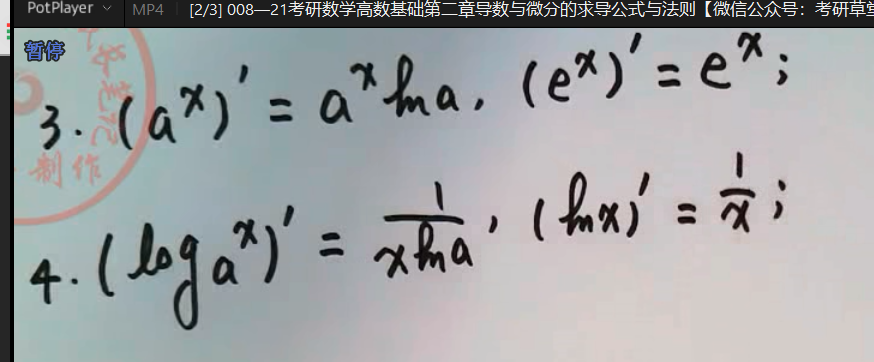 PotPlayer MP4 [2/3] 008—21考研数学高数基础第二章导数与微分的求导公式与法则【微信公众号：考研草堂
暂停
3. (aˣ)' = aˣ ln a, (eˣ)' = eˣ;
笔记
制作
4. (logₐx)' = 1/(x ln a), (ln x)' = 1/x;